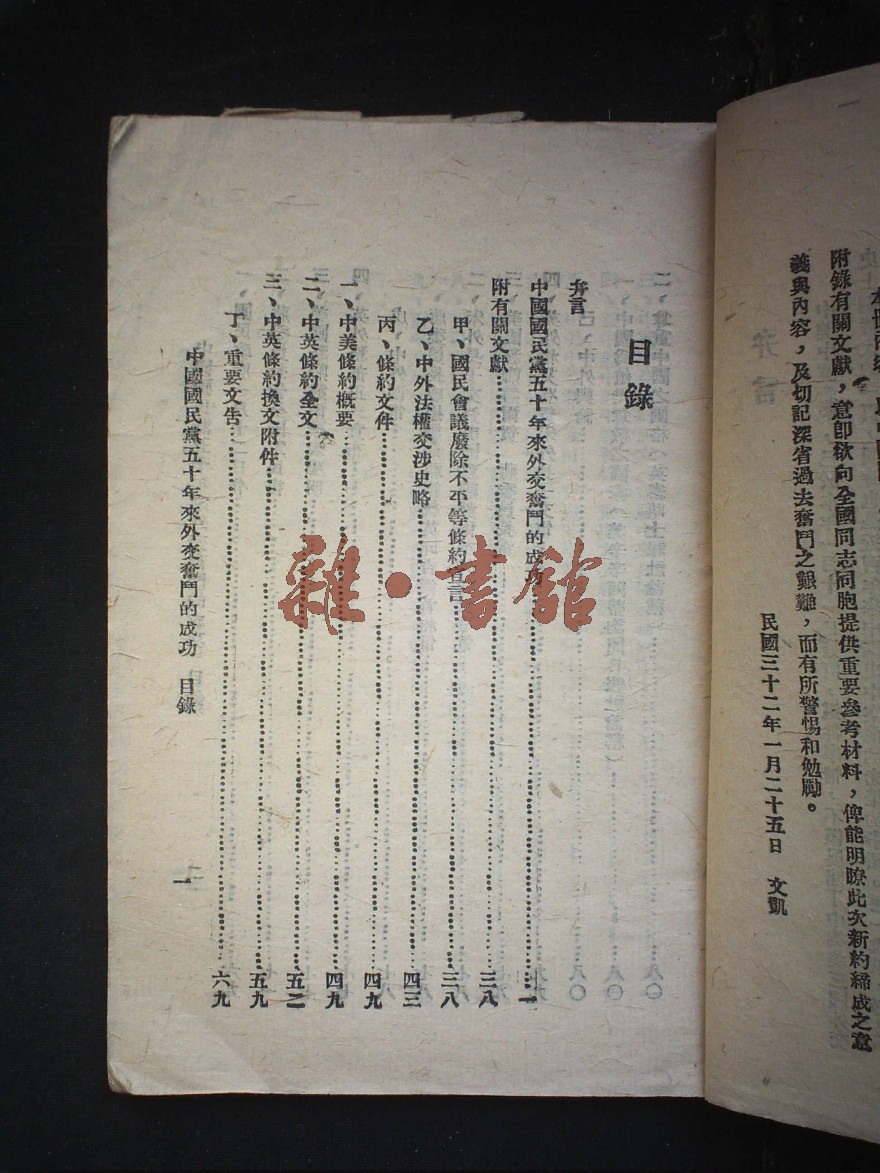 附錄有關文獻，意即欲向全國同志同胞提供重要參考材料，俾能明瞭此次新約締成之意
義與內容，及切記深省過去奮鬥之艱難，而有所警惕和勉勵。
民國三十二年一月二十五日　文凱
目錄
弁言
中國國民黨五十年來外交奮鬥的成功……一
附有關文獻……三八
甲、國民會議廢除不平等條約宣言……三八
乙、中外法權交涉史略……四三
丙、條約文件……四九
一、中美條約概要……四九
二、中英條約全文……五二
三、中英條約換文附件……五九
丁、重要文告……六九
中國國民黨五十年來外交奮鬥的成功　目錄
一
雜·書館